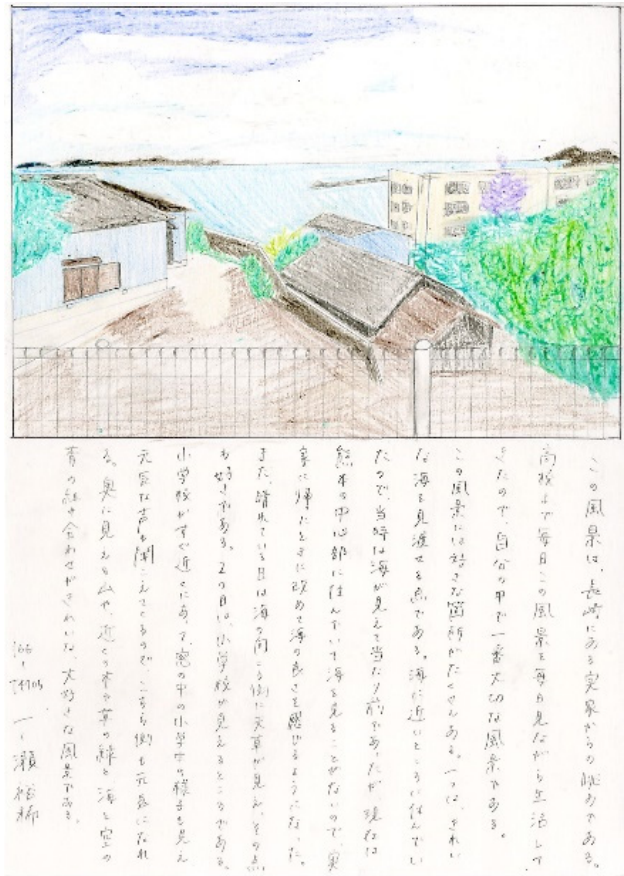 この風景は、長崎にある実家からの眺めである。
高校まで毎日この風景を毎日見ながら生活して
きたので、自分の中で一番大切な風景である。
この風景には好きな箇所がたくさんある。一つは、きれい
な海を見渡せる点である。海に近いところに住んでい
たので、当時は海が見えて当たり前であったが、現在は
熊本の中心部に住んでいて海を見ることがないので、実
家に帰ったときに改めて海の良さを感じるようになった。
また、晴れている日は海の向こう側に天草が見え、その点
も好きである。2つ目は、小学校が見えるところである。
小学校がすぐ近くにあって、窓の中の小学生の様子も見え
元気な声も聞こえてくるので、こちら側も元気になれ
る。奥に見える山や近くの木や草の緑と海と空の
青の組み合わせがきれいな、大好きな風景である。
166-T4705 一ノ瀬